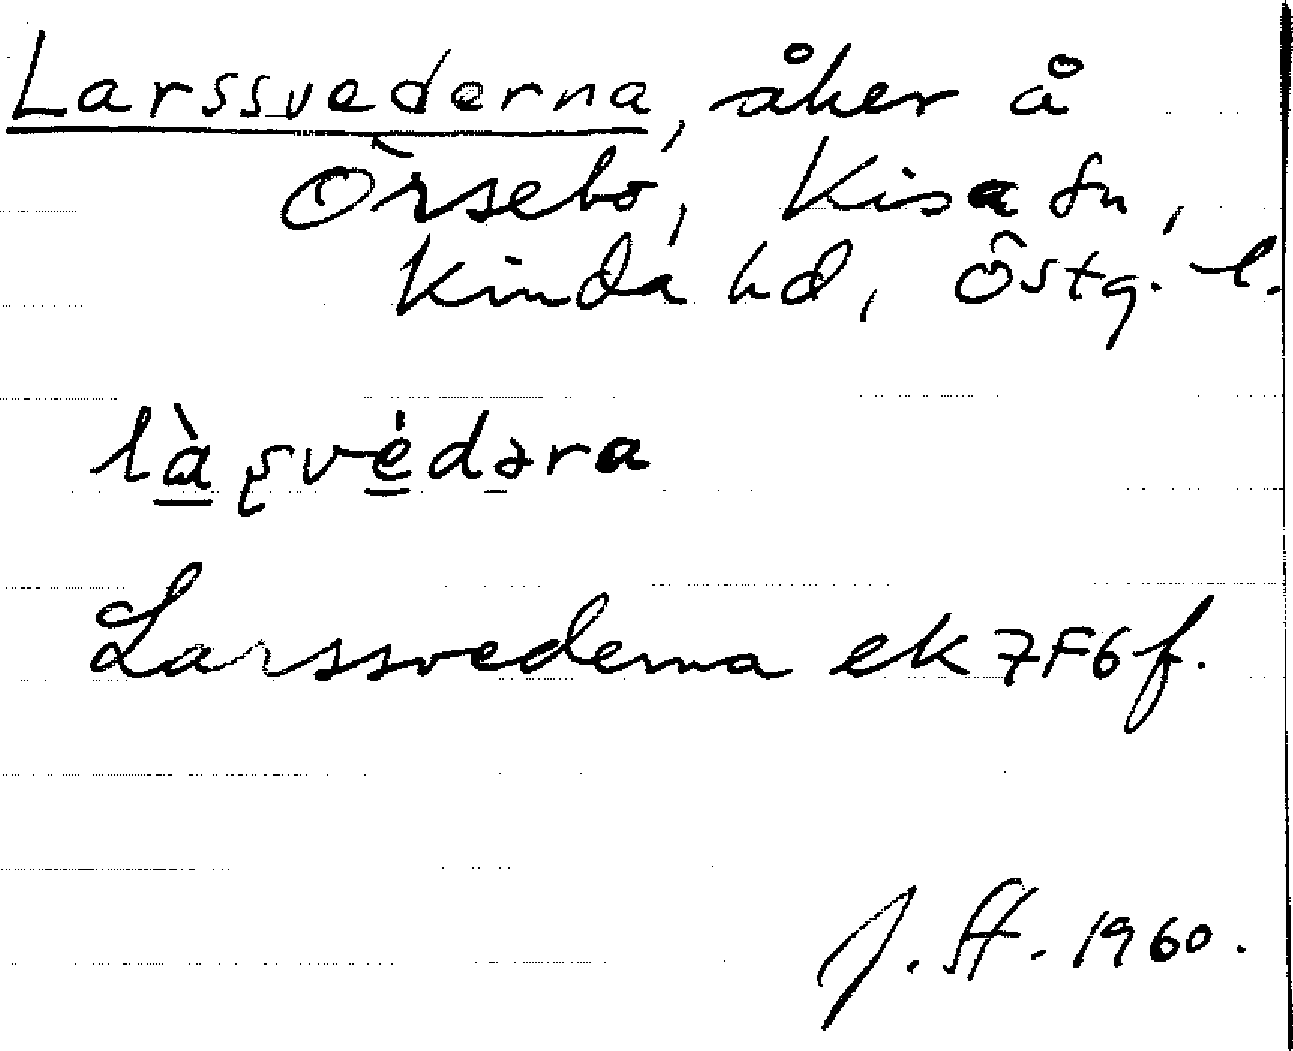 Larssvederna, åker å
Örsebo, Kisa sn,
Kinda hd, Östg. l.
là̱ʂvé̱dəra
Larssvederna ek 7F6f.
J. St. 1960.